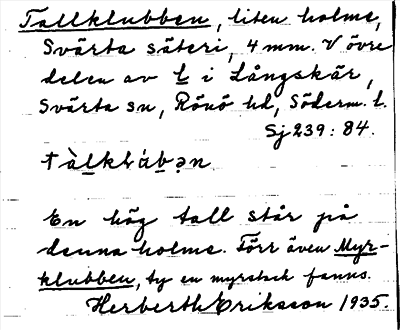 Tallklubben, liten holme,
Svärta säteri, 4 mm. V övre
delen av L i Långskär,
Svärta sn, Rönö hd, Söderm. l.
Sj 239: 84.
tàlkl̀ábən
En hög tall står på
denna holme. Förr även Myr-
klubben, ty en myrstack fanns.
Herberth Eriksson 1935.